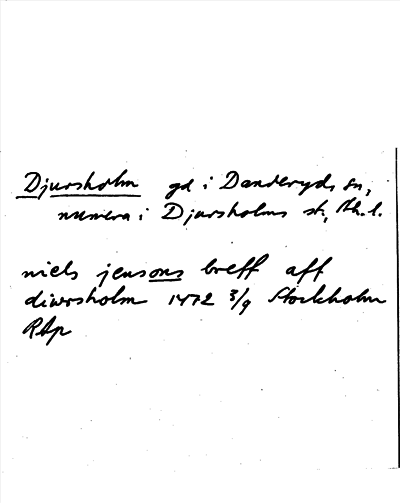 Djursholm gd i Danderyds sn,
numera i Djursholms st, Sth. l.
niels jensons breff aff
diwrsholm 1472 3/9 Stockholm
RAp